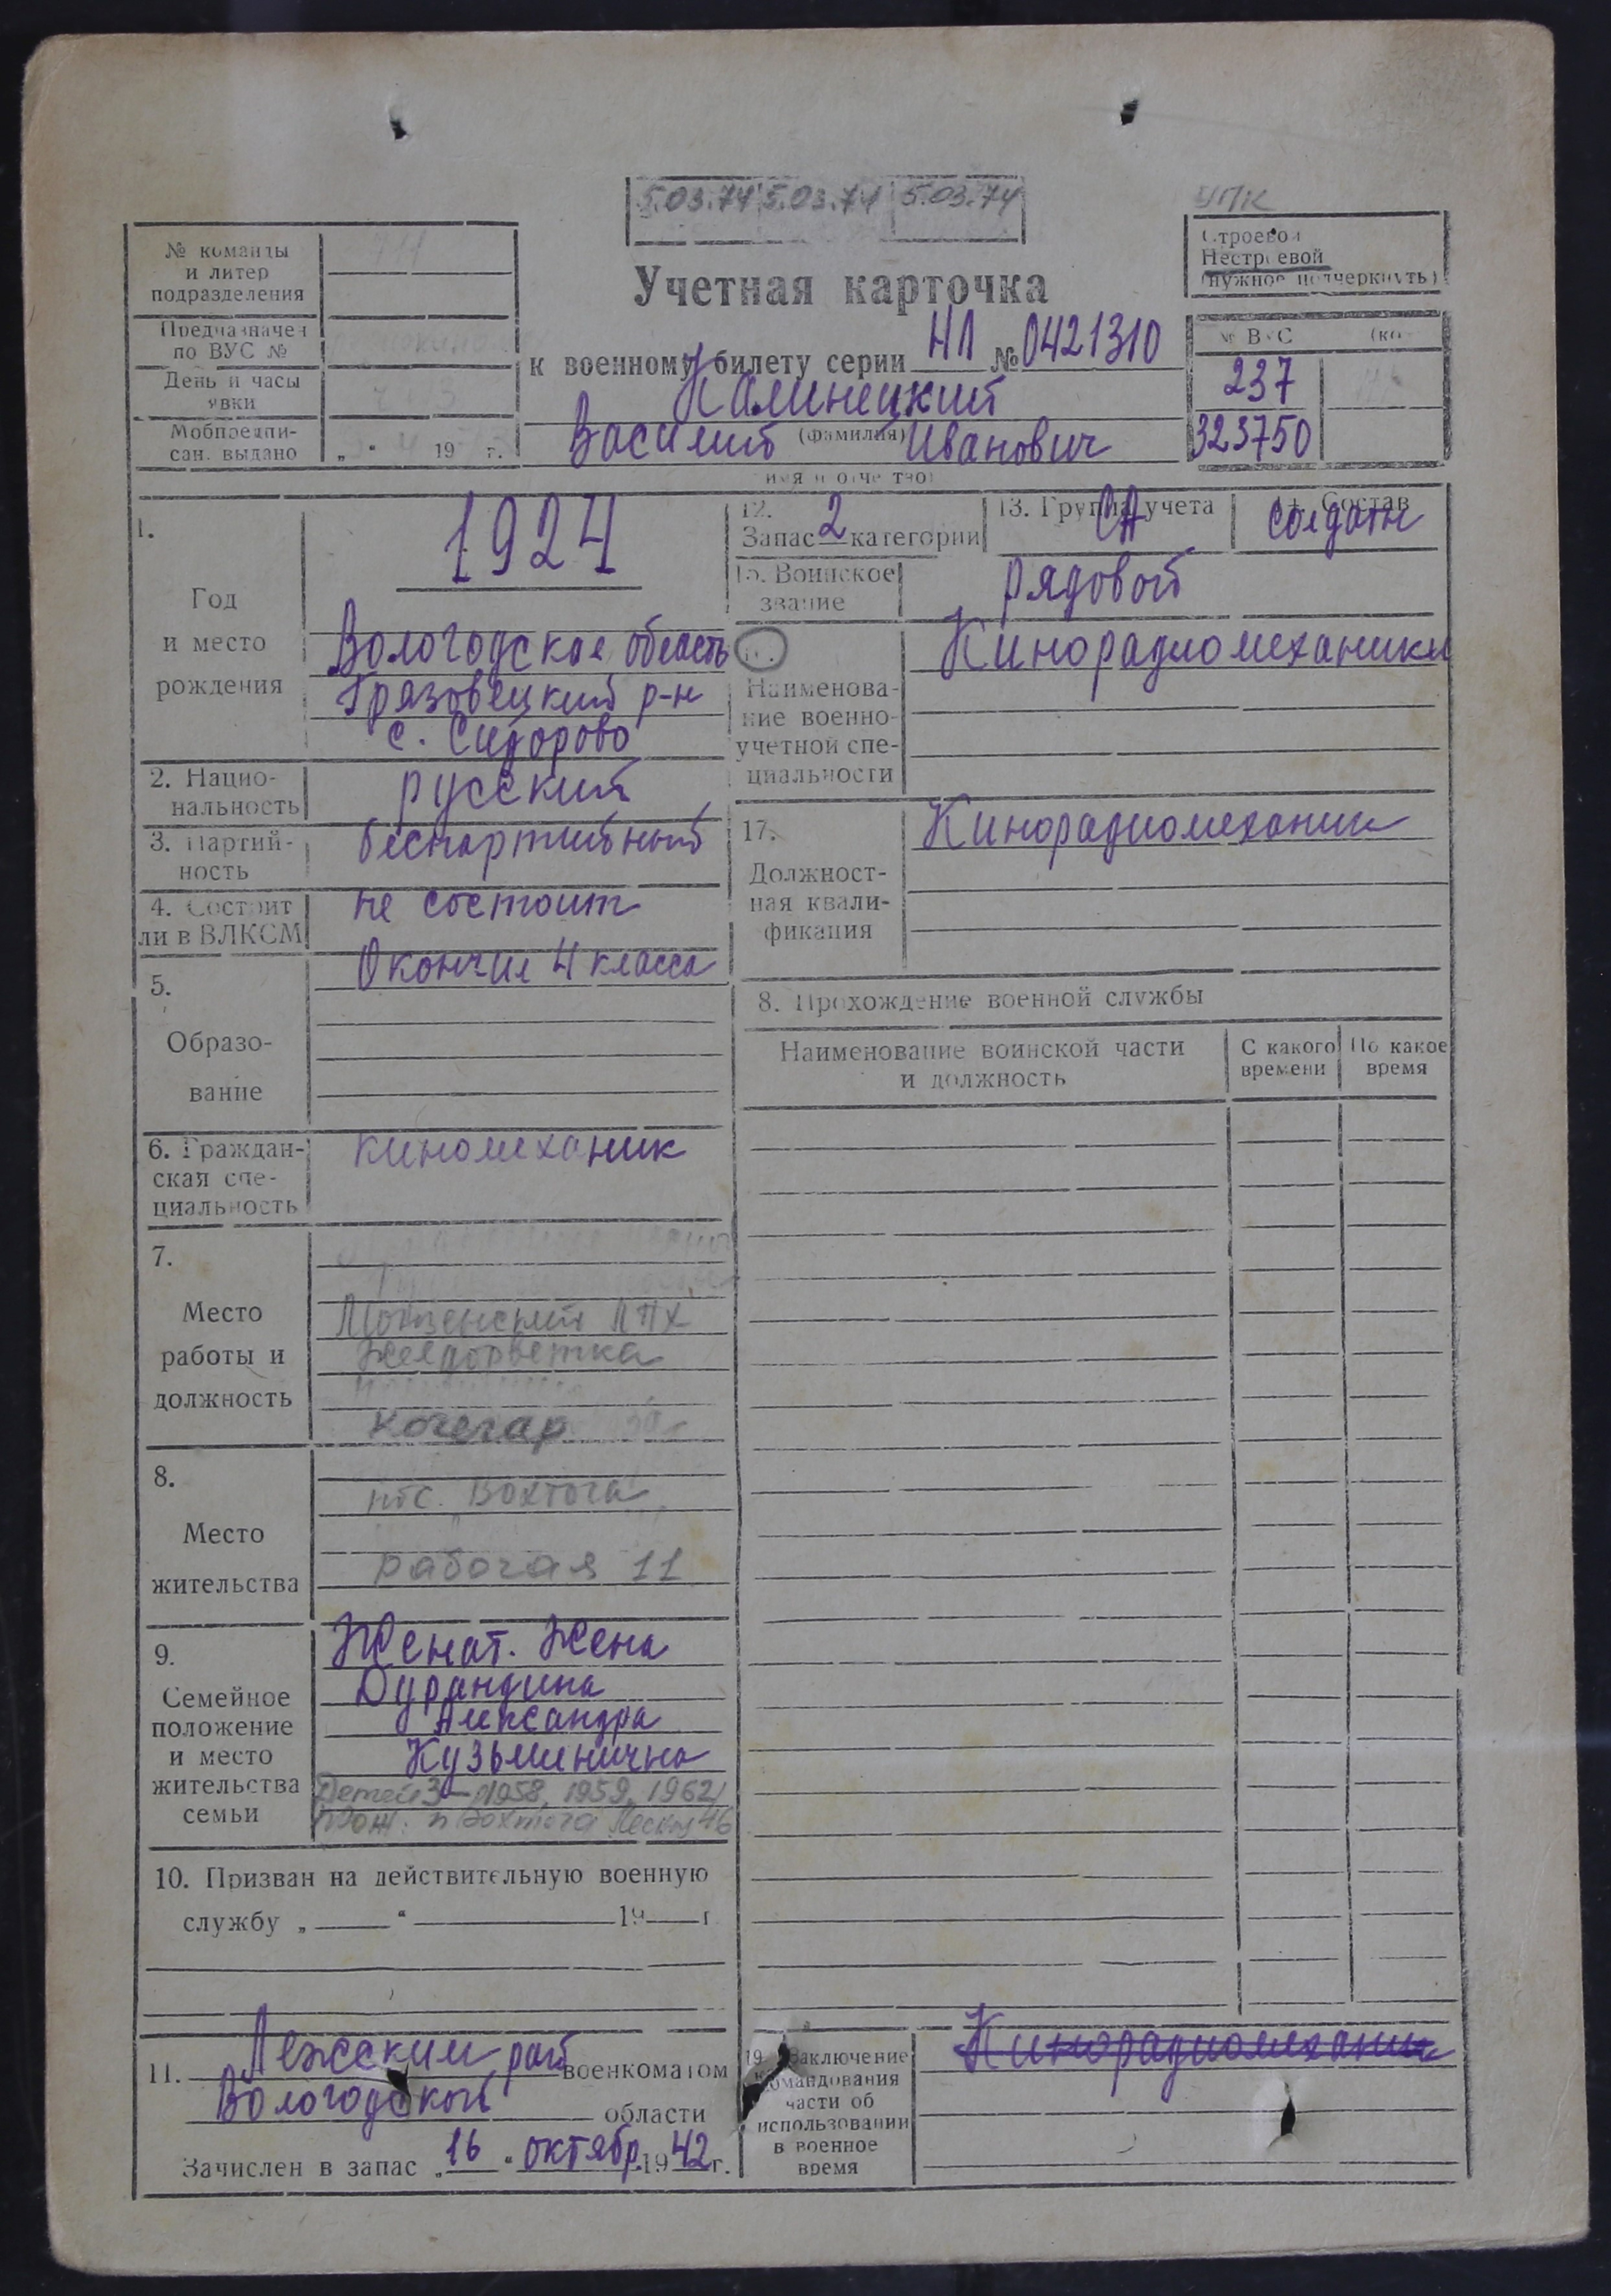 5.03.74 5.03.74 5.03.74
УПК
Строевой
Нестроевой
(нужное подчеркнуть)
№ команды
и литер
подразделения
Предназначен
по ВУС №
День и часы
явки
Мобпредпи-
сан. выдано „ “ 19 г.
Учетная карточка
к военному билету серии НЛ № 0421310
Калинецкий
(фамилия)
Василий Иванович
имя и отчество
№ ВУС
237
323750
1.
Год
и место
рождения
1924
Вологодская область
Грязовецкий р-н
с. Сидорово
2. Нацио-
нальность
русский
3. Партий-
ность
беспартийный
4. Состоит
ли в ВЛКСМ
не состоит
5.
Образо-
вание
Окончил 4 класса
6. Граждан-
ская спе-
циальность
киномеханик
7.
Место
работы и
должность
Монзенский ЛПХ
Желдорветка
кочегар
8.
Место
жительства
пос. Вохтога
рабочая 11
9.
Семейное
положение
и место
жительства
семьи
Женат. Жена
Дурандина
Александра
Кузьминична
Детей 3 – 1958, 1959, 1962
прож. п Вохтога 46
10. Призван на действительную военную
службу „ “ 19 г.
11. Лежским рай военкоматом
Вологодской области
Зачислен в запас „16“ октябр 1942 г.
12.
Запас 2 категории
13. Группа учета
СА
14. Состав
солдаты
15. Воинское
звание
рядовой
Наименова-
ние военно-
учетной спе-
циальности
Кинорадиомеханики
17.
Должност-
ная квали-
фикация
Кинорадиомеханик
8. Прохождение военной службы
Наименование воинской части
и должность
С какого
времени
По какое
время
19. Заключение
командования
части об
использовании
в военное
время
Кинорадиомеханик